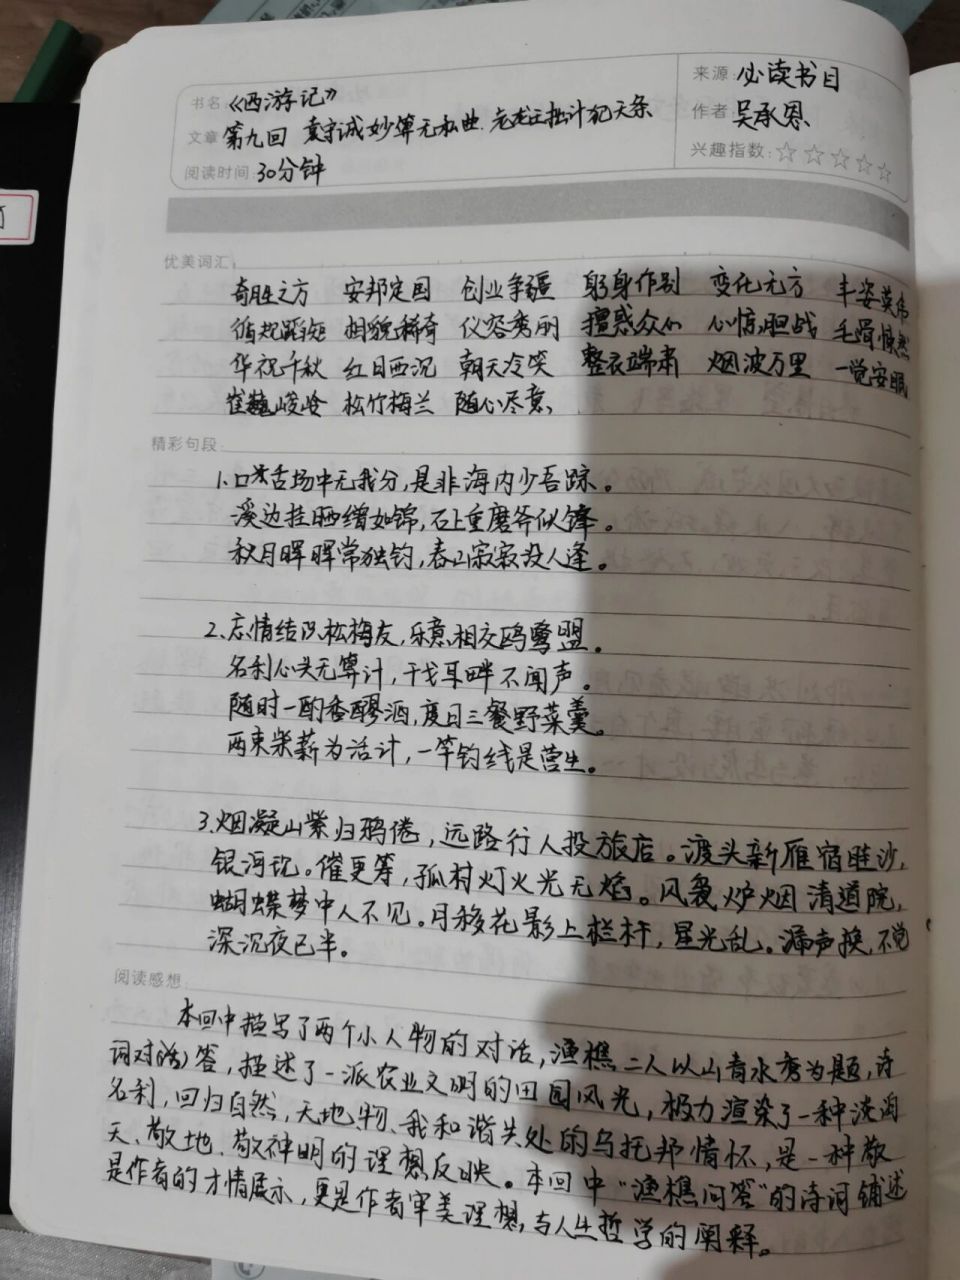 书名：《西游记》
来源：必读书目
文章：第九回 袁守诚妙算无私曲 老龙王拙计犯天条
作者：吴承恩
阅读时间：30分钟
兴趣指数：☆☆☆☆☆
优美词汇：
奇胜之方 安邦定国 创业争疆 躬身作别 变化无方 丰姿英伟
循规蹈矩 相貌稀奇 仪容秀丽 擅惑众人 心惊胆战 毛骨悚然
华祝千秋 红日西沉 朝天冷笑 整衣端肃 烟波万里 一觉安眠
崔巍峻岭 松竹梅兰 随心尽意
精彩句段：
1.口舌场中无我分，是非海内少吾踪。
溪边挂晒缯如锦，石上重磨斧似锋。
秋月晖晖常独钓，春山寂寂没人逢。
2.忘情结队松梅友，乐意相交鸥鹭盟。
名利心头无算计，干戈耳畔不闻声。
随时一酌香醪酒，度日三餐野菜羹。
两束柴薪为活计，一竿钓线是营生。
3.烟凝山紫归鸦倦，远路行人投旅店。渡头新雁宿眭沙，
银河现。催更筹，孤村灯火光无焰。风袅炉烟清道院，
蝴蝶梦中人不见。月移花影上栏杆，星光乱。漏声换，不觉
深沉夜已半。
阅读感想：
本回中描写了两个小人物的对话，渔樵二人以山青水秀为题，诗
词对答，描述了一派农业文明的田园风光，极力渲染了一种淡泊
名利，回归自然，天地、物、我和谐共处的乌托邦情怀，是一种敬
天、敬地、敬神明的理想反映。本回中“渔樵问答”的诗词铺述
是作者的才情展示，更是作者审美理想，与人生哲学的阐释。